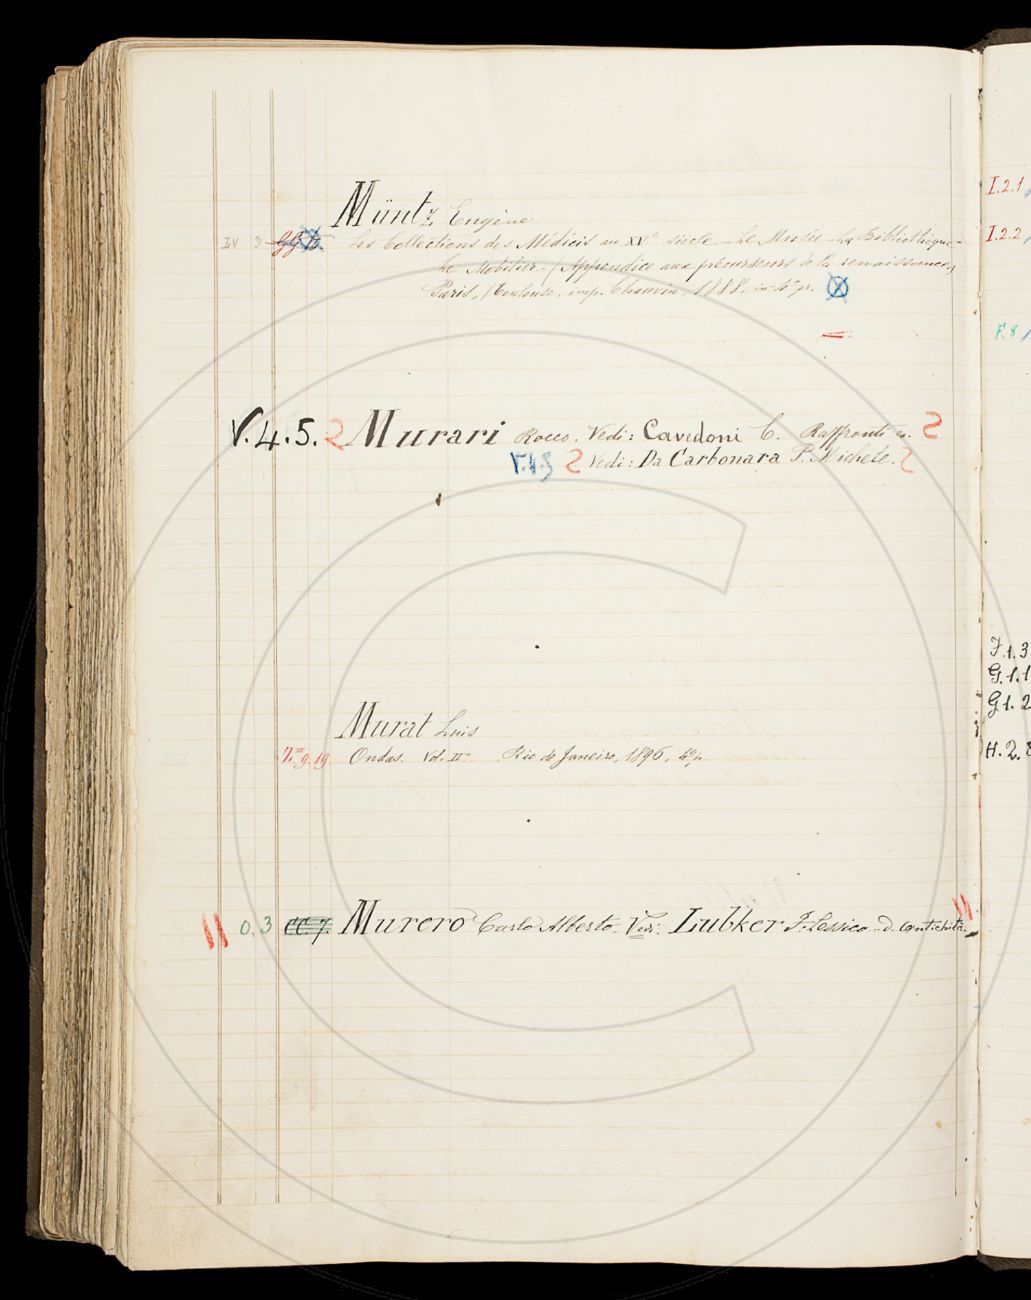 Müntz Eugène
IV 3 Les Collections des Médicis au XVe siècle – Le Musée – La Bibliothèque –
Le Mobilier – (Appendice aux précurseurs de la renaissance)
Paris, (Toulouse, imp. Chauvin) 1888. in-4° gr.
V.4.5. Murari Rocco. Vedi: Cavedoni C. Raffronti
Vedi: Da Carbonara P. Michele.
Murat Luis
Z.III 9.19 Ondas. Vol. II Rio de Janeiro, 1896,
O. 3 CC 7. Murero Carlo Alberto – Vedi: Lubker F. Lessico d. antichità.
I.2.1
I.2.2
F.8
F.1.3
G.1.1
G1.2
H.2.